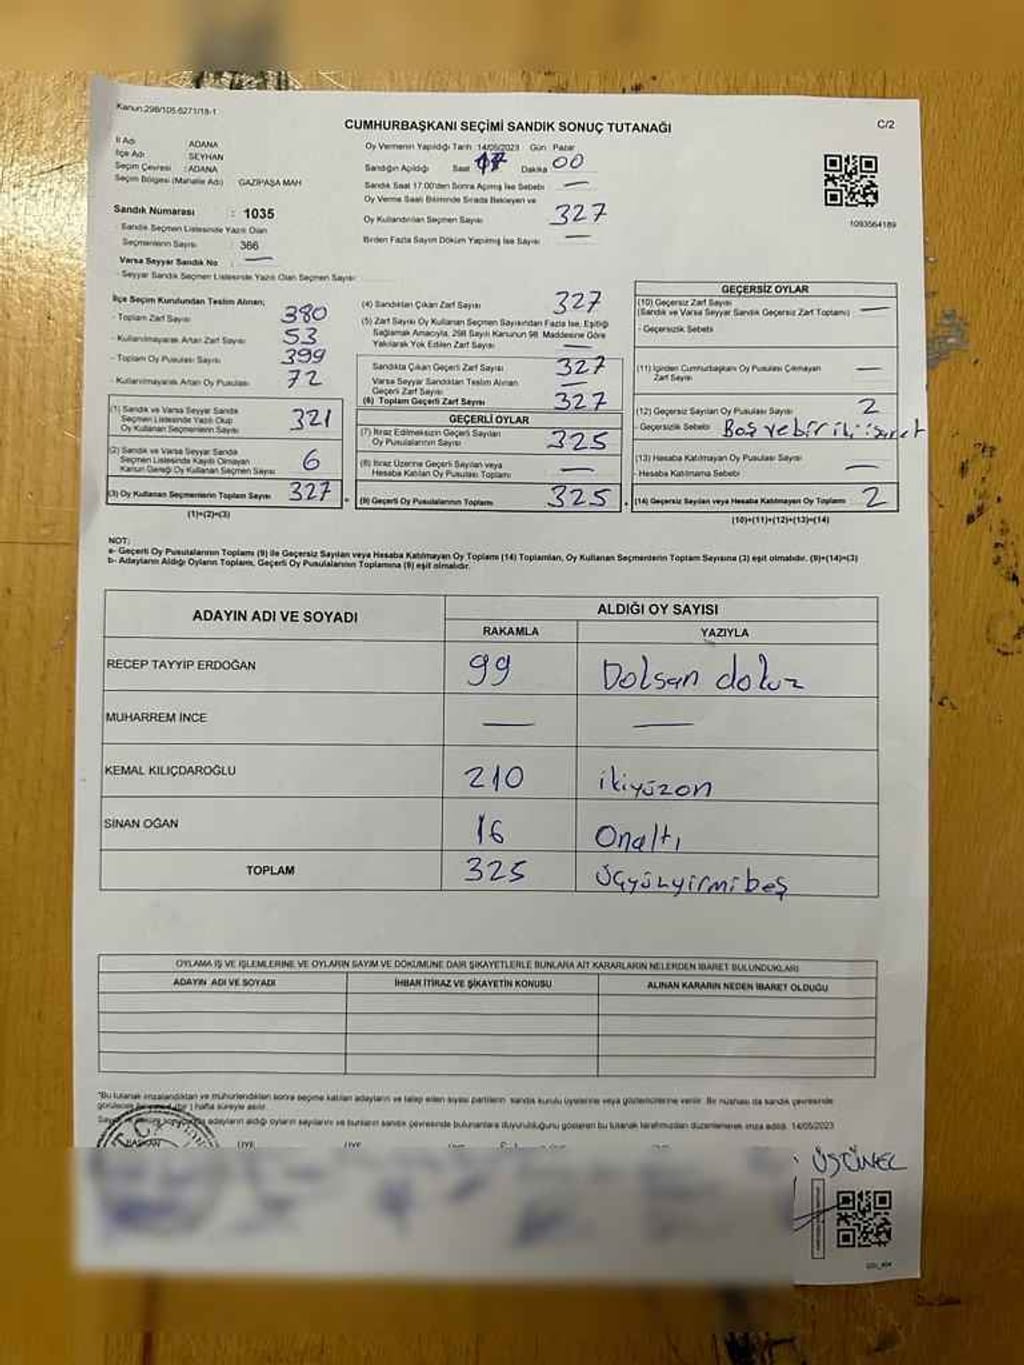 Kanun:298/105.6271/18-1
CUMHURBAŞKANI SEÇİMİ SANDIK SONUÇ TUTANAĞI
C/2
İl Adı ADANA
İlçe Adı SEYHAN
Seçim Çevresi :ADANA
Seçim Bölgesi (Mahalle Adı) GAZİPAŞA MAH
Sandık Numarası : 1035
- Sandık Seçmen Listesinde Yazılı Olan
Seçmenlerin Sayısı : 366
Varsa Seyyar Sandık No : —
- Seyyar Sandık Seçmen Listesinde Yazılı Olan Seçmen Sayısı
Oy Vermenin Yapıldığı Tarih :14/05/2023 Gün Pazar
Sandığın Açıldığı Saat 17 Dakika 00
Sandık Saat 17.00'den Sonra Açılmış İse Sebebi —
Oy Verme Saati Bitiminde Sırada Bekleyen ve
Oy Kullandırılan Seçmen Sayısı 327
Birden Fazla Sayım Döküm Yapılmış İse Sayısı —
1093564189
İlçe Seçim Kurulundan Teslim Alınan;
- Toplam Zarf Sayısı 380
- Kullanılmayarak Artan Zarf Sayısı 53
- Toplam Oy Pusulası Sayısı 399
- Kullanılmayarak Artan Oy Pusulası 72
(1) Sandık ve Varsa Seyyar Sandık
Seçmen Listesinde Yazılı Olup
Oy Kullanan Seçmenlerin Sayısı 321
(2) Sandık ve Varsa Seyyar Sandık
Seçmen Listesinde Kayıtlı Olmayan
Kanun Gereği Oy Kullanan Seçmen Sayısı 6
(3) Oy Kullanan Seçmenlerin Toplam Sayısı 327
(1)+(2)=(3)
(4) Sandıktan Çıkan Zarf Sayısı 327
(5) Zarf Sayısı Oy Kullanan Seçmen Sayısından Fazla İse, Eşitliği
Sağlamak Amacıyla, 298 Sayılı Kanunun 98. Maddesine Göre
Yakılarak Yok Edilen Zarf Sayısı —
Sandıkta Çıkan Geçerli Zarf Sayısı 327
Varsa Seyyar Sandıktan Teslim Alınan
Geçerli Zarf Sayısı —
(6) Toplam Geçerli Zarf Sayısı 327
GEÇERLİ OYLAR
(7) İtiraz Edilmeksizin Geçerli Sayılan
Oy Pusulalarının Sayısı 325
(8) İtiraz Üzerine Geçerli Sayılan veya
Hesaba Katılan Oy Pusulası Toplamı —
(9) Geçerli Oy Pusulalarının Toplamı 325
GEÇERSİZ OYLAR
(10) Geçersiz Zarf Sayısı
(Sandık ve Varsa Seyyar Sandık Geçersiz Zarf Toplamı) —
- Geçersizlik Sebebi
(11) İçinden Cumhurbaşkanı Oy Pusulası Çıkmayan
Zarf Sayısı —
(12) Geçersiz Sayılan Oy Pusulası Sayısı 2
- Geçersizlik Sebebi Boş ve bir iki işaret
(13) Hesaba Katılmayan Oy Pusulası Sayısı
- Hesaba Katılmama Sebebi —
(14) Geçersiz Sayılan veya Hesaba Katılmayan Oy Toplamı 2
(10)+(11)+(12)+(13)=(14)
NOT:
a- Geçerli Oy Pusulalarının Toplamı (9) ile Geçersiz Sayılan veya Hesaba Katılmayan Oy Toplamı (14) Toplamları, Oy Kullanan Seçmenlerin Toplam Sayısına (3) eşit olmalıdır. (9)+(14)=(3)
b- Adayların Aldığı Oyların Toplamı, Geçerli Oy Pusulalarının Toplamına (9) eşit olmalıdır.
ADAYIN ADI VE SOYADI ALDIĞI OY SAYISI
RAKAMLA YAZIYLA
RECEP TAYYİP ERDOĞAN 99 Doksan dokuz
MUHARREM İNCE — —
KEMAL KILIÇDAROĞLU 210 ikiyüzon
SİNAN OĞAN 16 Onaltı
TOPLAM 325 Üçyüzyirmibeş
OYLAMA İŞ VE İŞLEMLERİNE VE OYLARIN SAYIM VE DÖKÜMÜNE DAİR ŞİKAYETLERLE BUNLARA AİT KARARLARIN NELERDEN İBARET BULUNDUKLARI
ADAYIN ADI VE SOYADI İHBAR İTİRAZ VE ŞİKAYETİN KONUSU ALINAN KARARIN NEDEN İBARET OLDUĞU
*Bu tutanak imzalandıktan ve mühürlendikten sonra seçime katılan adayların ve talep eden siyasi partilerin sandık kurulu üyelerine veya gözlemcilerine verilir. Bir nüshası da sandık çevresinde
hafta süreyle asılır.
adayların aldığı oyların sayılarını ve bunların sandık çevresinde bulunanlara duyurulduğunu gösteren bu tutanak tarafımızdan düzenlenerek imza edildi. 14/05/2023
BAŞKAN ÜYE ÜYE
ÜSTÜNEL